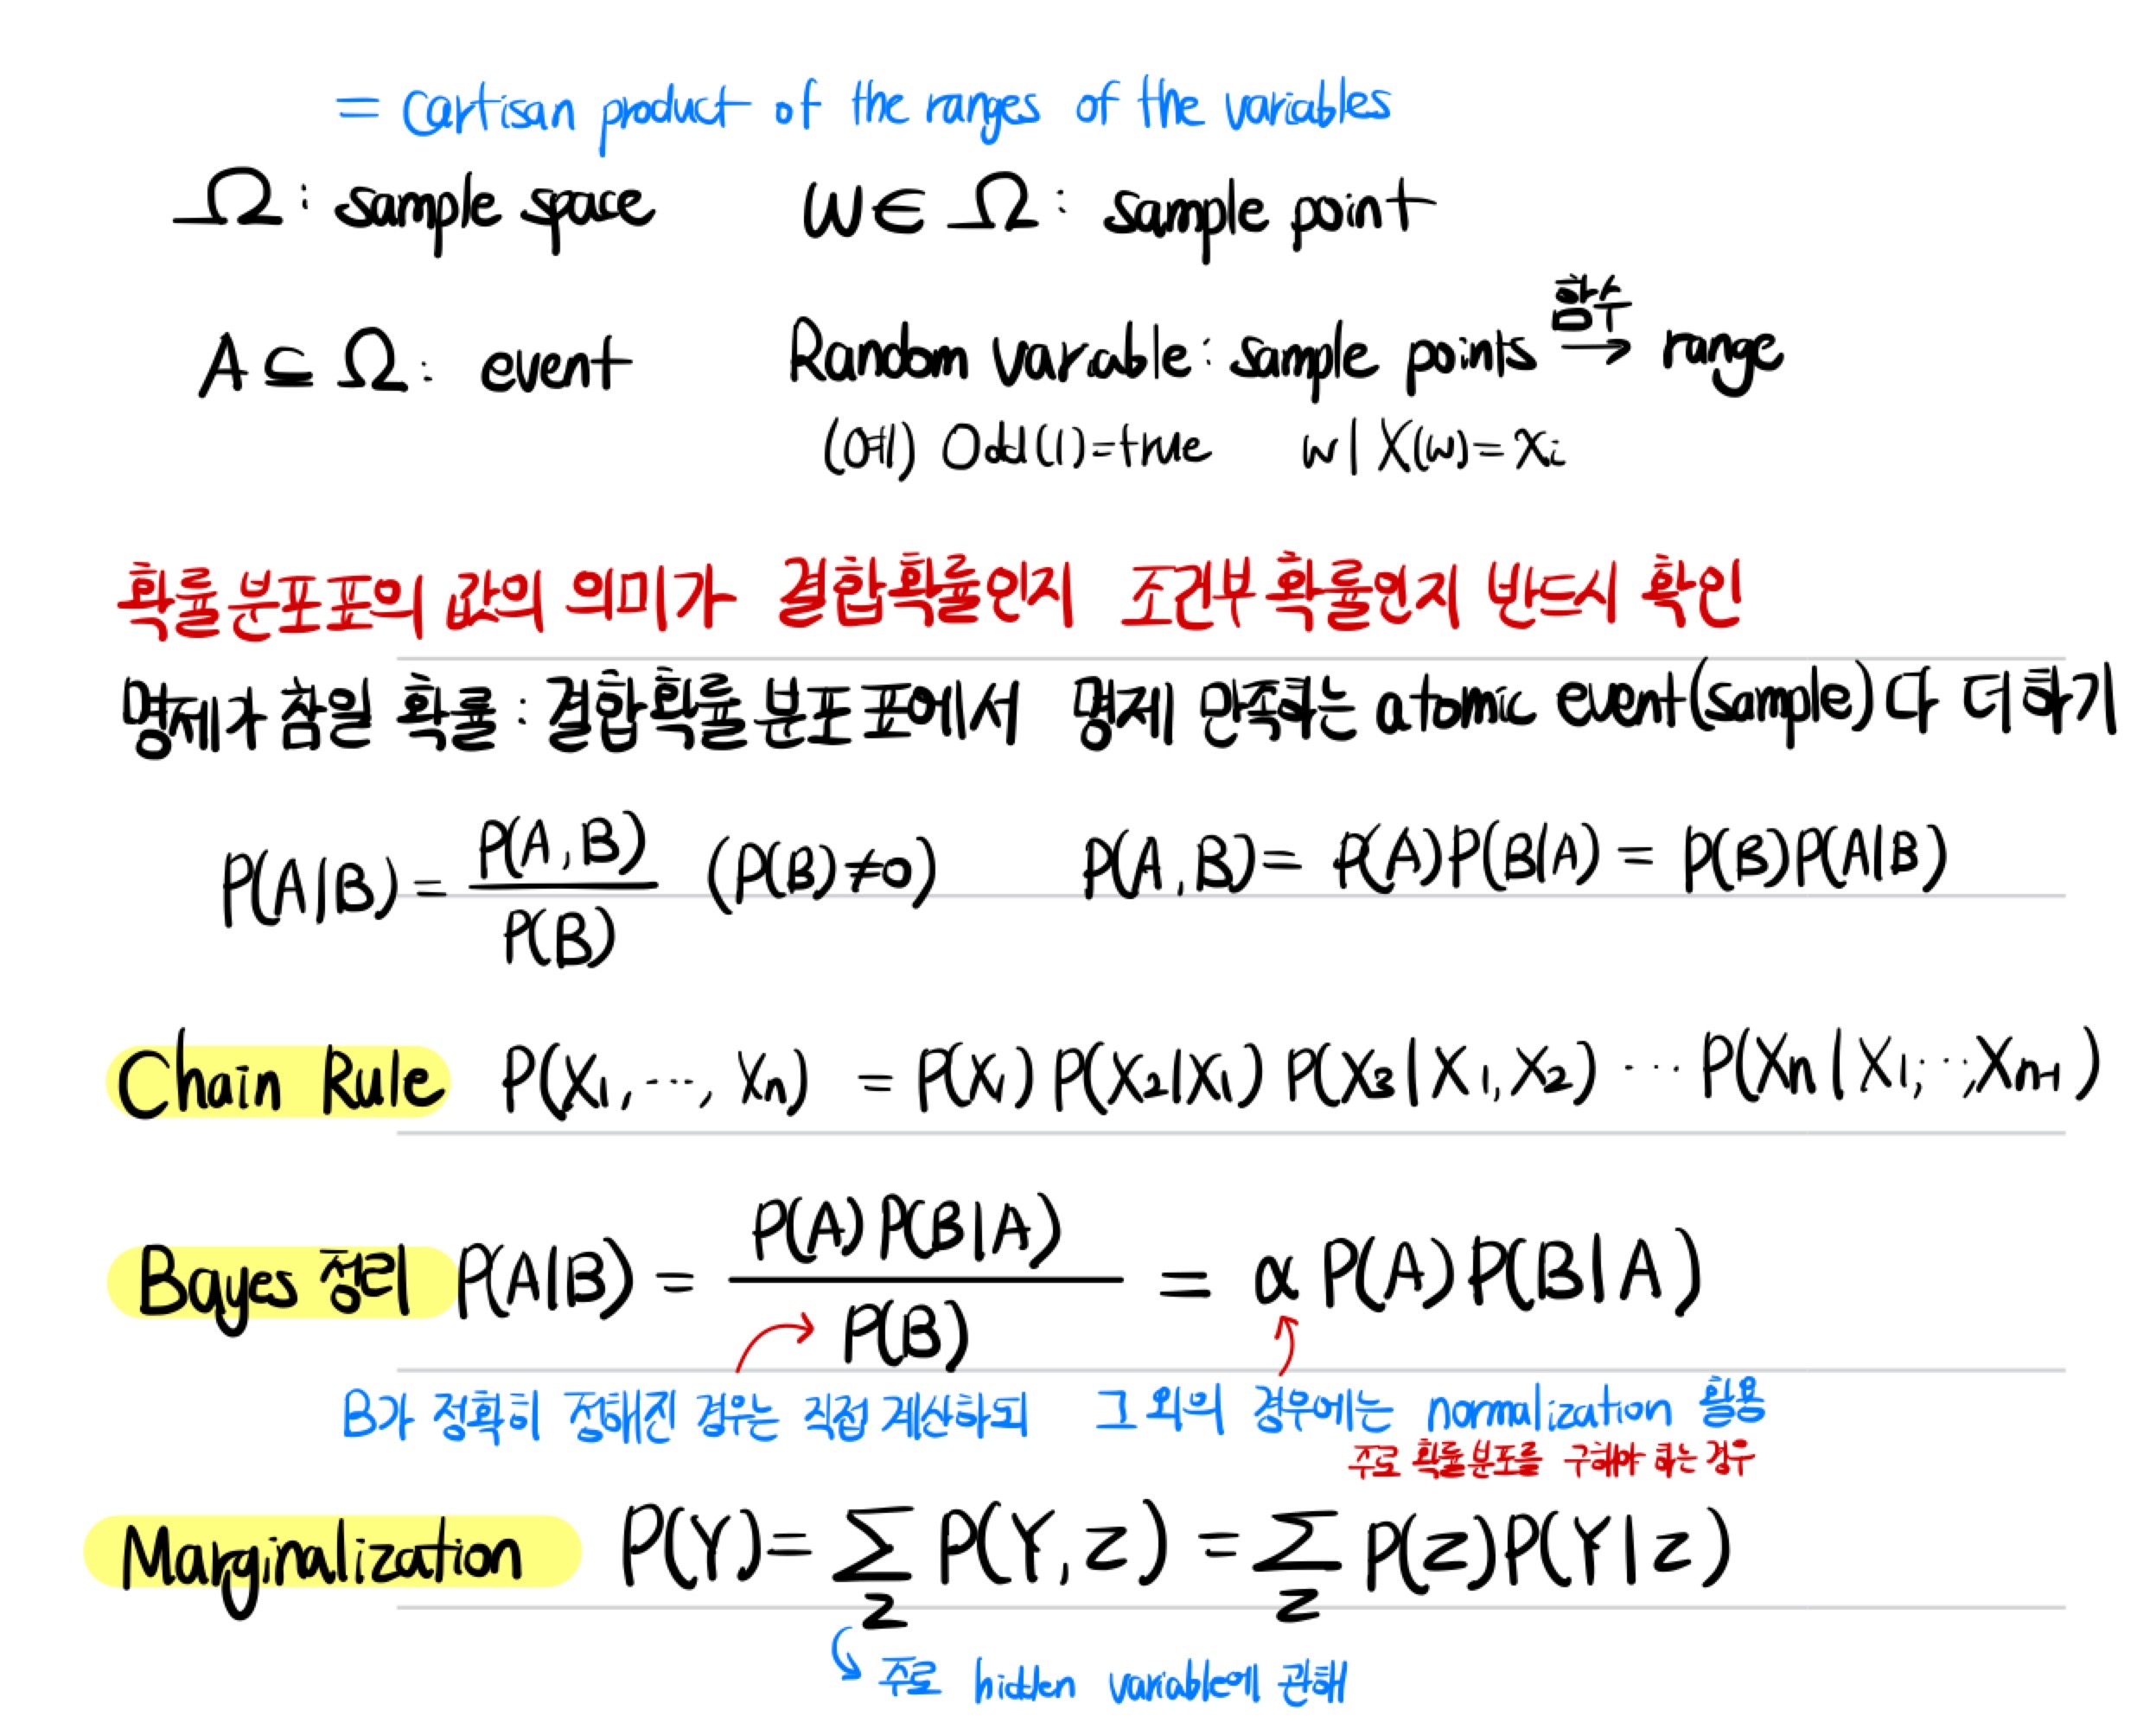 = Cartisan product of the ranges of the variables
Ω : sample space    w ∈ Ω : sample point
A ⊆ Ω : event    Random variable : sample points →(함수) range
(예) Odd(1)=true    w | X(w)=xᵢ
확률분포표의 값의 의미가 결합확률인지 조건부 확률인지 반드시 확인
명제가 참일 확률 : 결합확률분포표에서 명제 만족하는 atomic event(sample) 다 더하기
P(A|B) = P(A,B) / P(B)  (P(B)≠0)    P(A,B) = P(A)P(B|A) = P(B)P(A|B)
Chain Rule  P(X₁, ⋯, Xₙ) = P(X₁) P(X₂|X₁) P(X₃|X₁,X₂) ⋯ P(Xₙ|X₁,⋯,Xₙ₋₁)
Bayes 정리  P(A|B) = P(A)P(B|A) / P(B) = α P(A)P(B|A)
B가 정확히 정해진 경우는 직접 계산하되  그 외의 경우에는 normalization 활용
주로 확률분포를 구해야 하는 경우
Marginalization  P(Y) = Σ_z P(Y,z) = Σ_z P(z)P(Y|z)
주로 hidden variable에 관해